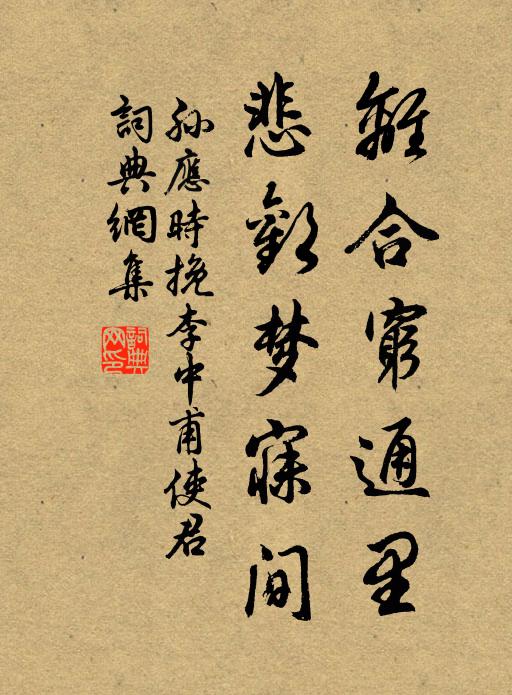 離合窮通里
悲歡梦寐间
孙應時挽李中甫使君
詞典網集
詞典网印